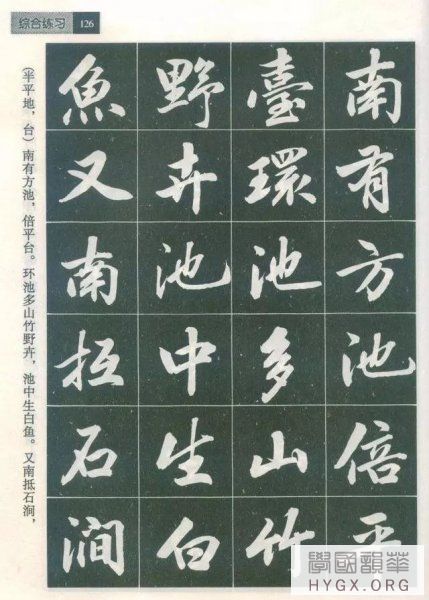 综合练习 126
南有方池倍平
臺環池多山竹
野卉池中生白
魚又南抵石澗
(半平地，台)南有方池，倍平台。环池多山竹野卉，池中生白鱼。又南抵石涧，
華韻國學
HYGX.ORG